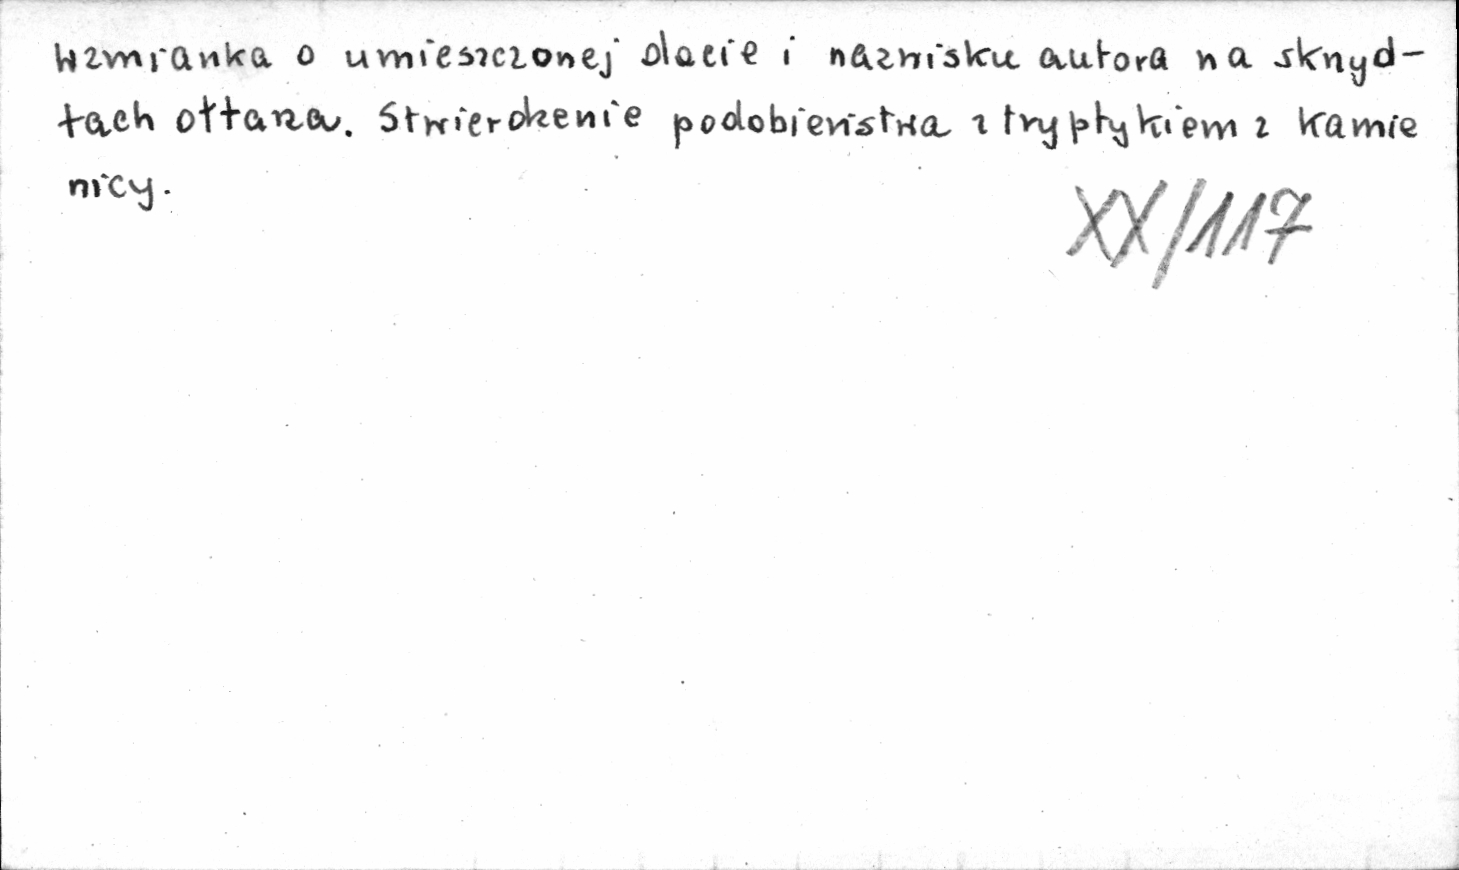 Wzmianka o umieszczonej dacie i nazwisku autora na skrzyd-
łach ołtarza. Stwierdzenie podobieństwa z tryptykiem z Kamie
nicy.
XX/117